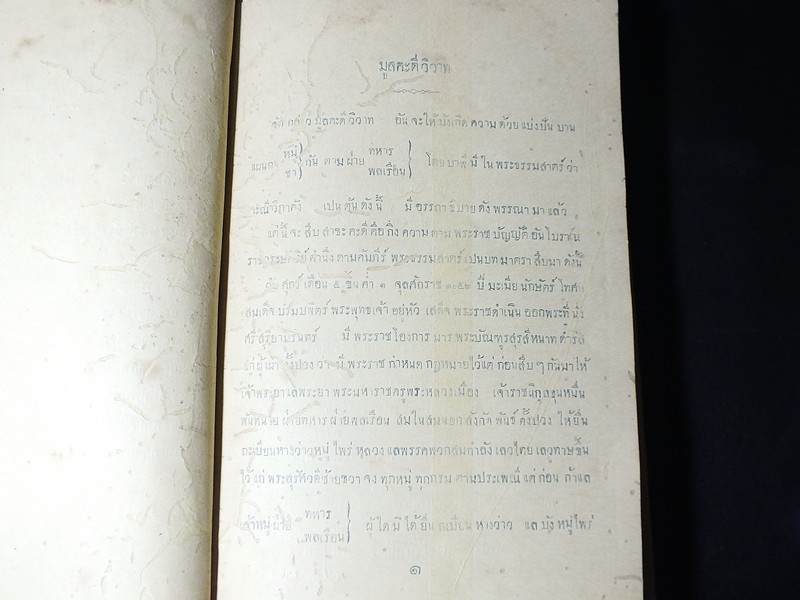 มูลคะดีวิวาท
มูลคะดีวิวาท อันจะให้บังเกิด ความ ด้วย แบ่งปัน บาน
แผนก หมู่ กัน ตาม ฝ่าย ทหาร โดย บาฬี มี ใน พระธรรมสาตร์ ว่า
ชา พลเรือน
เปน ต้น ดังนี้ มี อรรถาธิบาย ดัง พรรณา มา แล้ว
แต่นี้ จะ สืบ สาขะ คะดี คือ กิ่ง ความ ตาม พระราช บัญญัติ อัน โบราณ
ราช กระษัตริย์ คำนึง ตาม คัมภีร์ พระธรรมสาตร์ เปน บท มาตรา สืบมา ดังนี้
เดือน ๕ ขึ้น ค่ำ ๑ จุลศักราช ๑๐๕๒ ปี มะเมีย นักษัตร โทศก
สมเด็จ บรมบพิตร พระพุทธเจ้า อยู่หัว เสด็จ พระราชดำเนิน ออก พระที่นั่ง
ศรีสุริยา มี พระราชโองการ มาร พระบัณฑูร สุรสีหนาท ดำรัส
ทั้งปวง ว่า มี พระราช กำหนด กฎหมาย ไว้ แต่ ก่อน สืบ ๆ กัน มา ให้
เจ้าพระยา แล พระยา พระมหาราชครู พระ หลวง เมือง เจ้า ราชนิกูล ขุน หมื่น
พันทนาย ฝ่าย ทหาร ฝ่าย พลเรือน สมใน สมนอก สังกัด พันธ์ ทั้งปวง ให้ ยื่น
ทะเบียน หางว่าว หมู่ ไพร่ หลวง แล พรรคพวก สมกำลัง เลวไทย เลวทาษ ขึ้น
ไว้ แก่ พระสุรัศวดี ซ้าย ขวา จง ทุกหมู่ ทุกกรม ตาม ประเพณี แต่ ก่อน ถ้า แล
เจ้าหมู่ ฝ่าย ทหาร ผู้ใด มิ ได้ ยื่น ทเบียน หางว่าว แล บัง หมู่ ไพร่
พลเรือน
๑